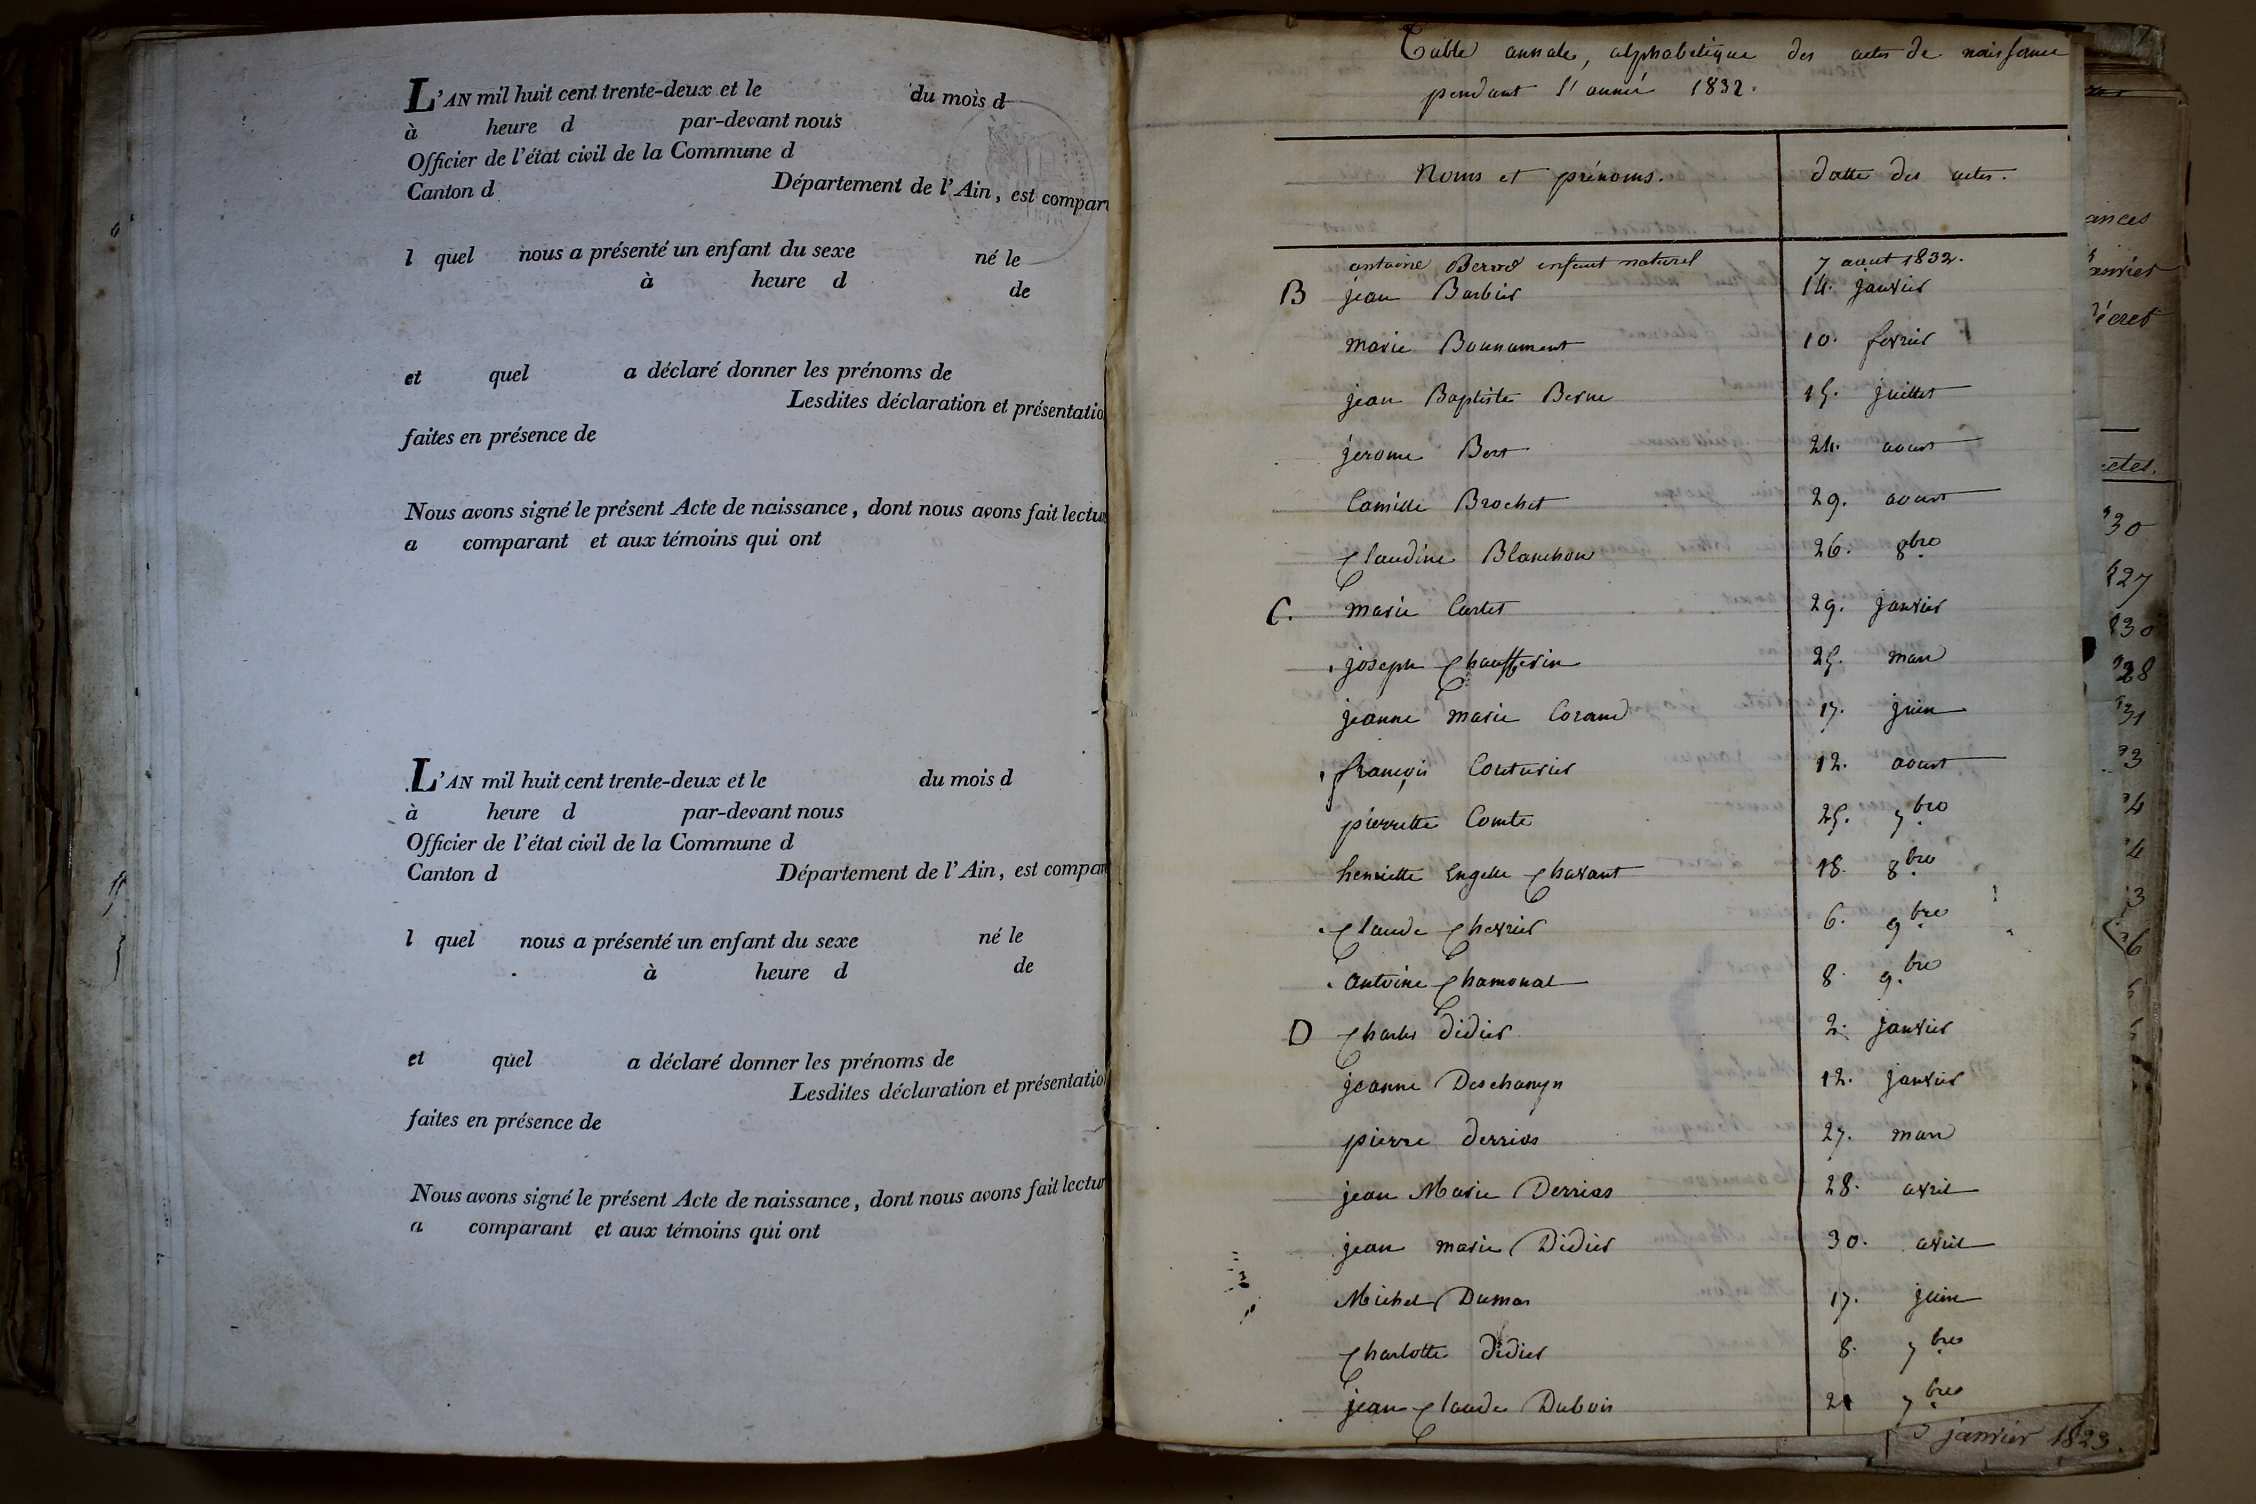 L'AN mil huit cent trente-deux et le du mois d
à heure d par-devant nous
Officier de l'état civil de la Commune d
Canton d Département de l'Ain, est compar
l quel nous a présenté un enfant du sexe né le
à heure d de
et quel a déclaré donner les prénoms de
Lesdites déclaration et présentatio
faites en présence de
Nous avons signé le présent Acte de naissance, dont nous avons fait lectur
a comparant et aux témoins qui ont
L'AN mil huit cent trente-deux et le du mois d
à heure d par-devant nous
Officier de l'état civil de la Commune d
Canton d Département de l'Ain, est compar
l quel nous a présenté un enfant du sexe né le
à heure d de
et quel a déclaré donner les prénoms de
Lesdites déclaration et présentatio
faites en présence de
Nous avons signé le présent Acte de naissance, dont nous avons fait lectur
a comparant et aux témoins qui ont
Table annale, alphabetique des actes de naissance
pendant l'année 1832.
Noms et prénoms. datte des actes.
antoine Berod enfant naturel 7 aout 1832.
B jean Barbier 14. janvier
marie Bonnament 10. fevrier
jean Baptiste Berne 15. juillet
jerome Bert 24. aoust
Camille Brochet 29. aoust
Claudine Blanchon 26. 8bre
C. marie Cartet 29. janvier
joseph Chaufferin 25. mars
jeanne marie Corand 17. juin
françois Couturier 12. aoust
pierrette Comte 25. 7bre
henriette Engelle Chavant 18. 8bre
Claude Chevrier 6. 9bre
antoine Chamonal 8. 9bre
D Charles Didier 2. janvier
jeanne Deschamps 12. janvier
pierre Derrias 27. mars
jean Marie Derrias 28. avril
jean marie Didier 30. avril
Michel Dumas 17. juin
Charlotte Didier 8. 7bre
jean Claude Dubois 21 7bre
janvier 1823.